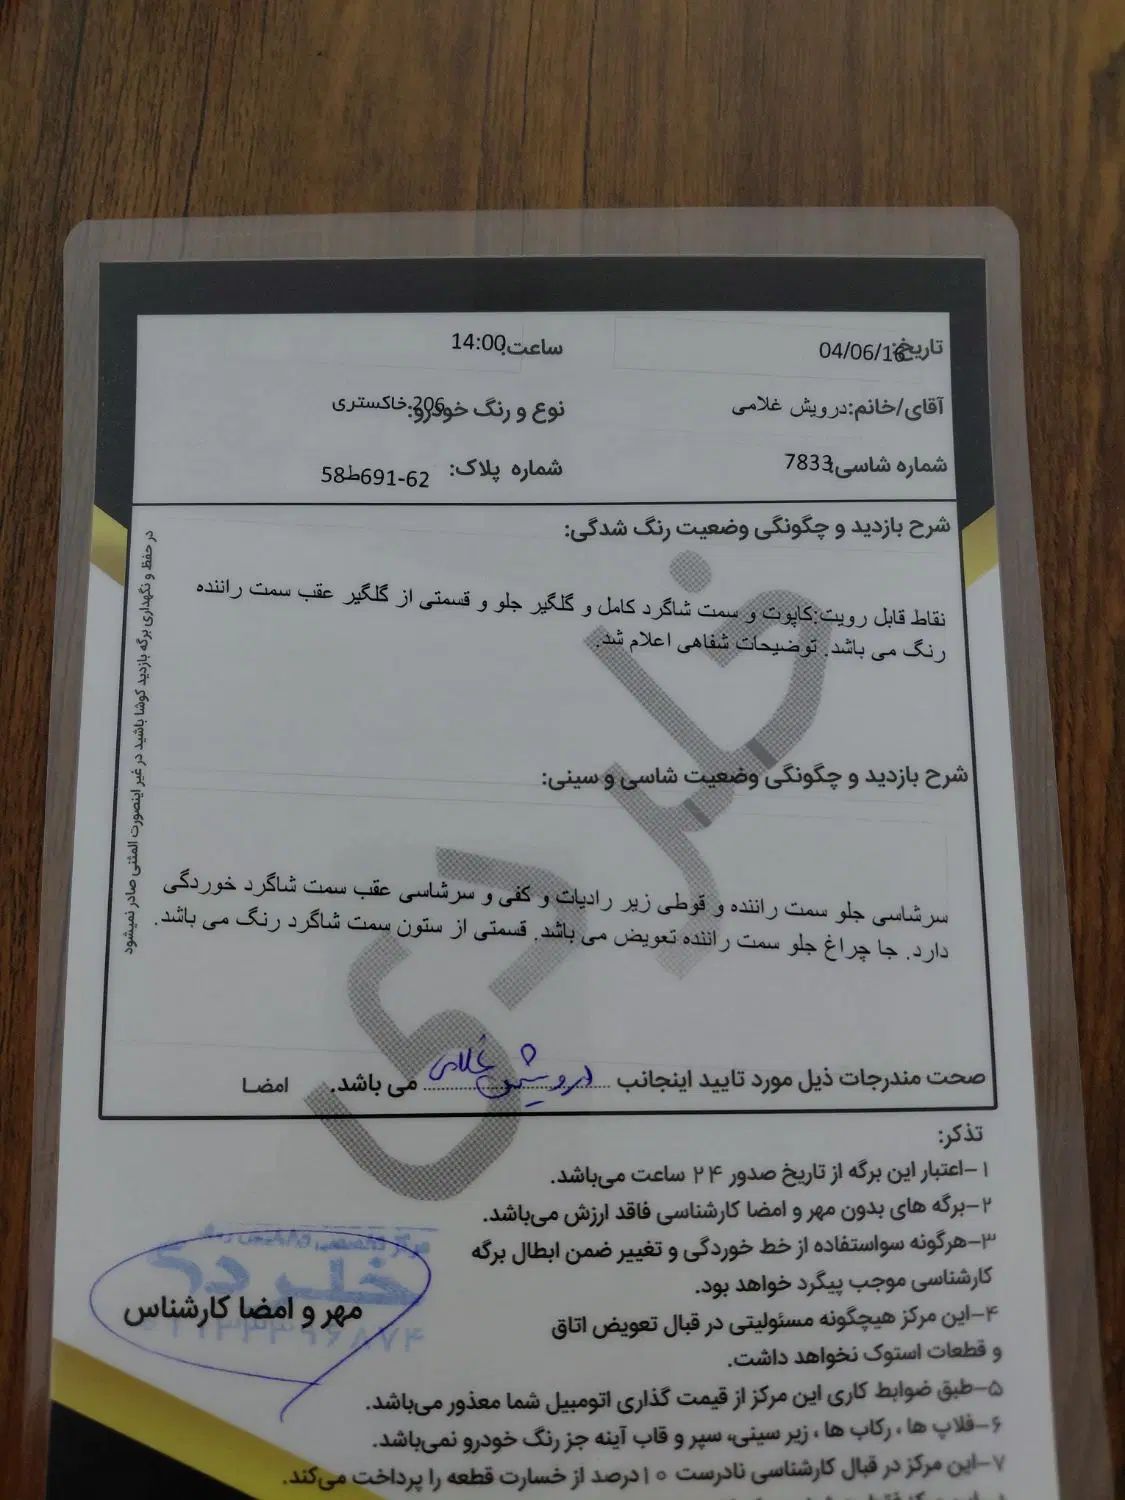 تاریخ: 04/06/16
ساعت: 14:00
آقای/خانم:درویش غلامی
نوع و رنگ خودرو: 206 خاکستری
شماره شاسی: 7833
شماره پلاک: 58ط691-62
شرح بازدید و چگونگی وضعیت رنگ شدگی:
نقاط قابل رویت:کاپوت و سمت شاگرد کامل و گلگیر جلو و قسمتی از گلگیر عقب سمت راننده
رنگ می باشد. توضیحات شفاهی اعلام شد.
شرح بازدید و چگونگی وضعیت شاسی و سینی:
سرشاسی جلو سمت راننده و قوطی زیر رادیات و کفی و سرشاسی عقب سمت شاگرد خوردگی
دارد. جا چراغ جلو سمت راننده تعویض می باشد. قسمتی از ستون سمت شاگرد رنگ می باشد.
صحت مندرجات ذیل مورد تایید اینجانب درویش غلامی می باشد. امضا
در حفظ و نگهداری برگه بازدید کوشا باشید در غیر اینصورت المثنی صادر نمیشود
تذکر:
۱-اعتبار این برگه از تاریخ صدور ۲۴ ساعت می‌باشد.
۲-برگه های بدون مهر و امضا کارشناسی فاقد ارزش می‌باشد.
۳-هرگونه سواستفاده از خط خوردگی و تغییر ضمن ابطال برگه
کارشناسی موجب پیگرد خواهد بود.
۴-این مرکز هیچگونه مسئولیتی در قبال تعویض اتاق
و قطعات استوک نخواهد داشت.
۵-طبق ضوابط کاری این مرکز از قیمت گذاری اتومبیل شما معذور می‌باشد.
۶-فلاپ ها ، رکاب ها ، زیر سینی، سپر و قاب آینه جز رنگ خودرو نمی‌باشد.
۷-این مرکز در قبال کارشناسی نادرست ۱۰ درصد از خسارت قطعه را پرداخت می‌کند.
مهر و امضا کارشناس